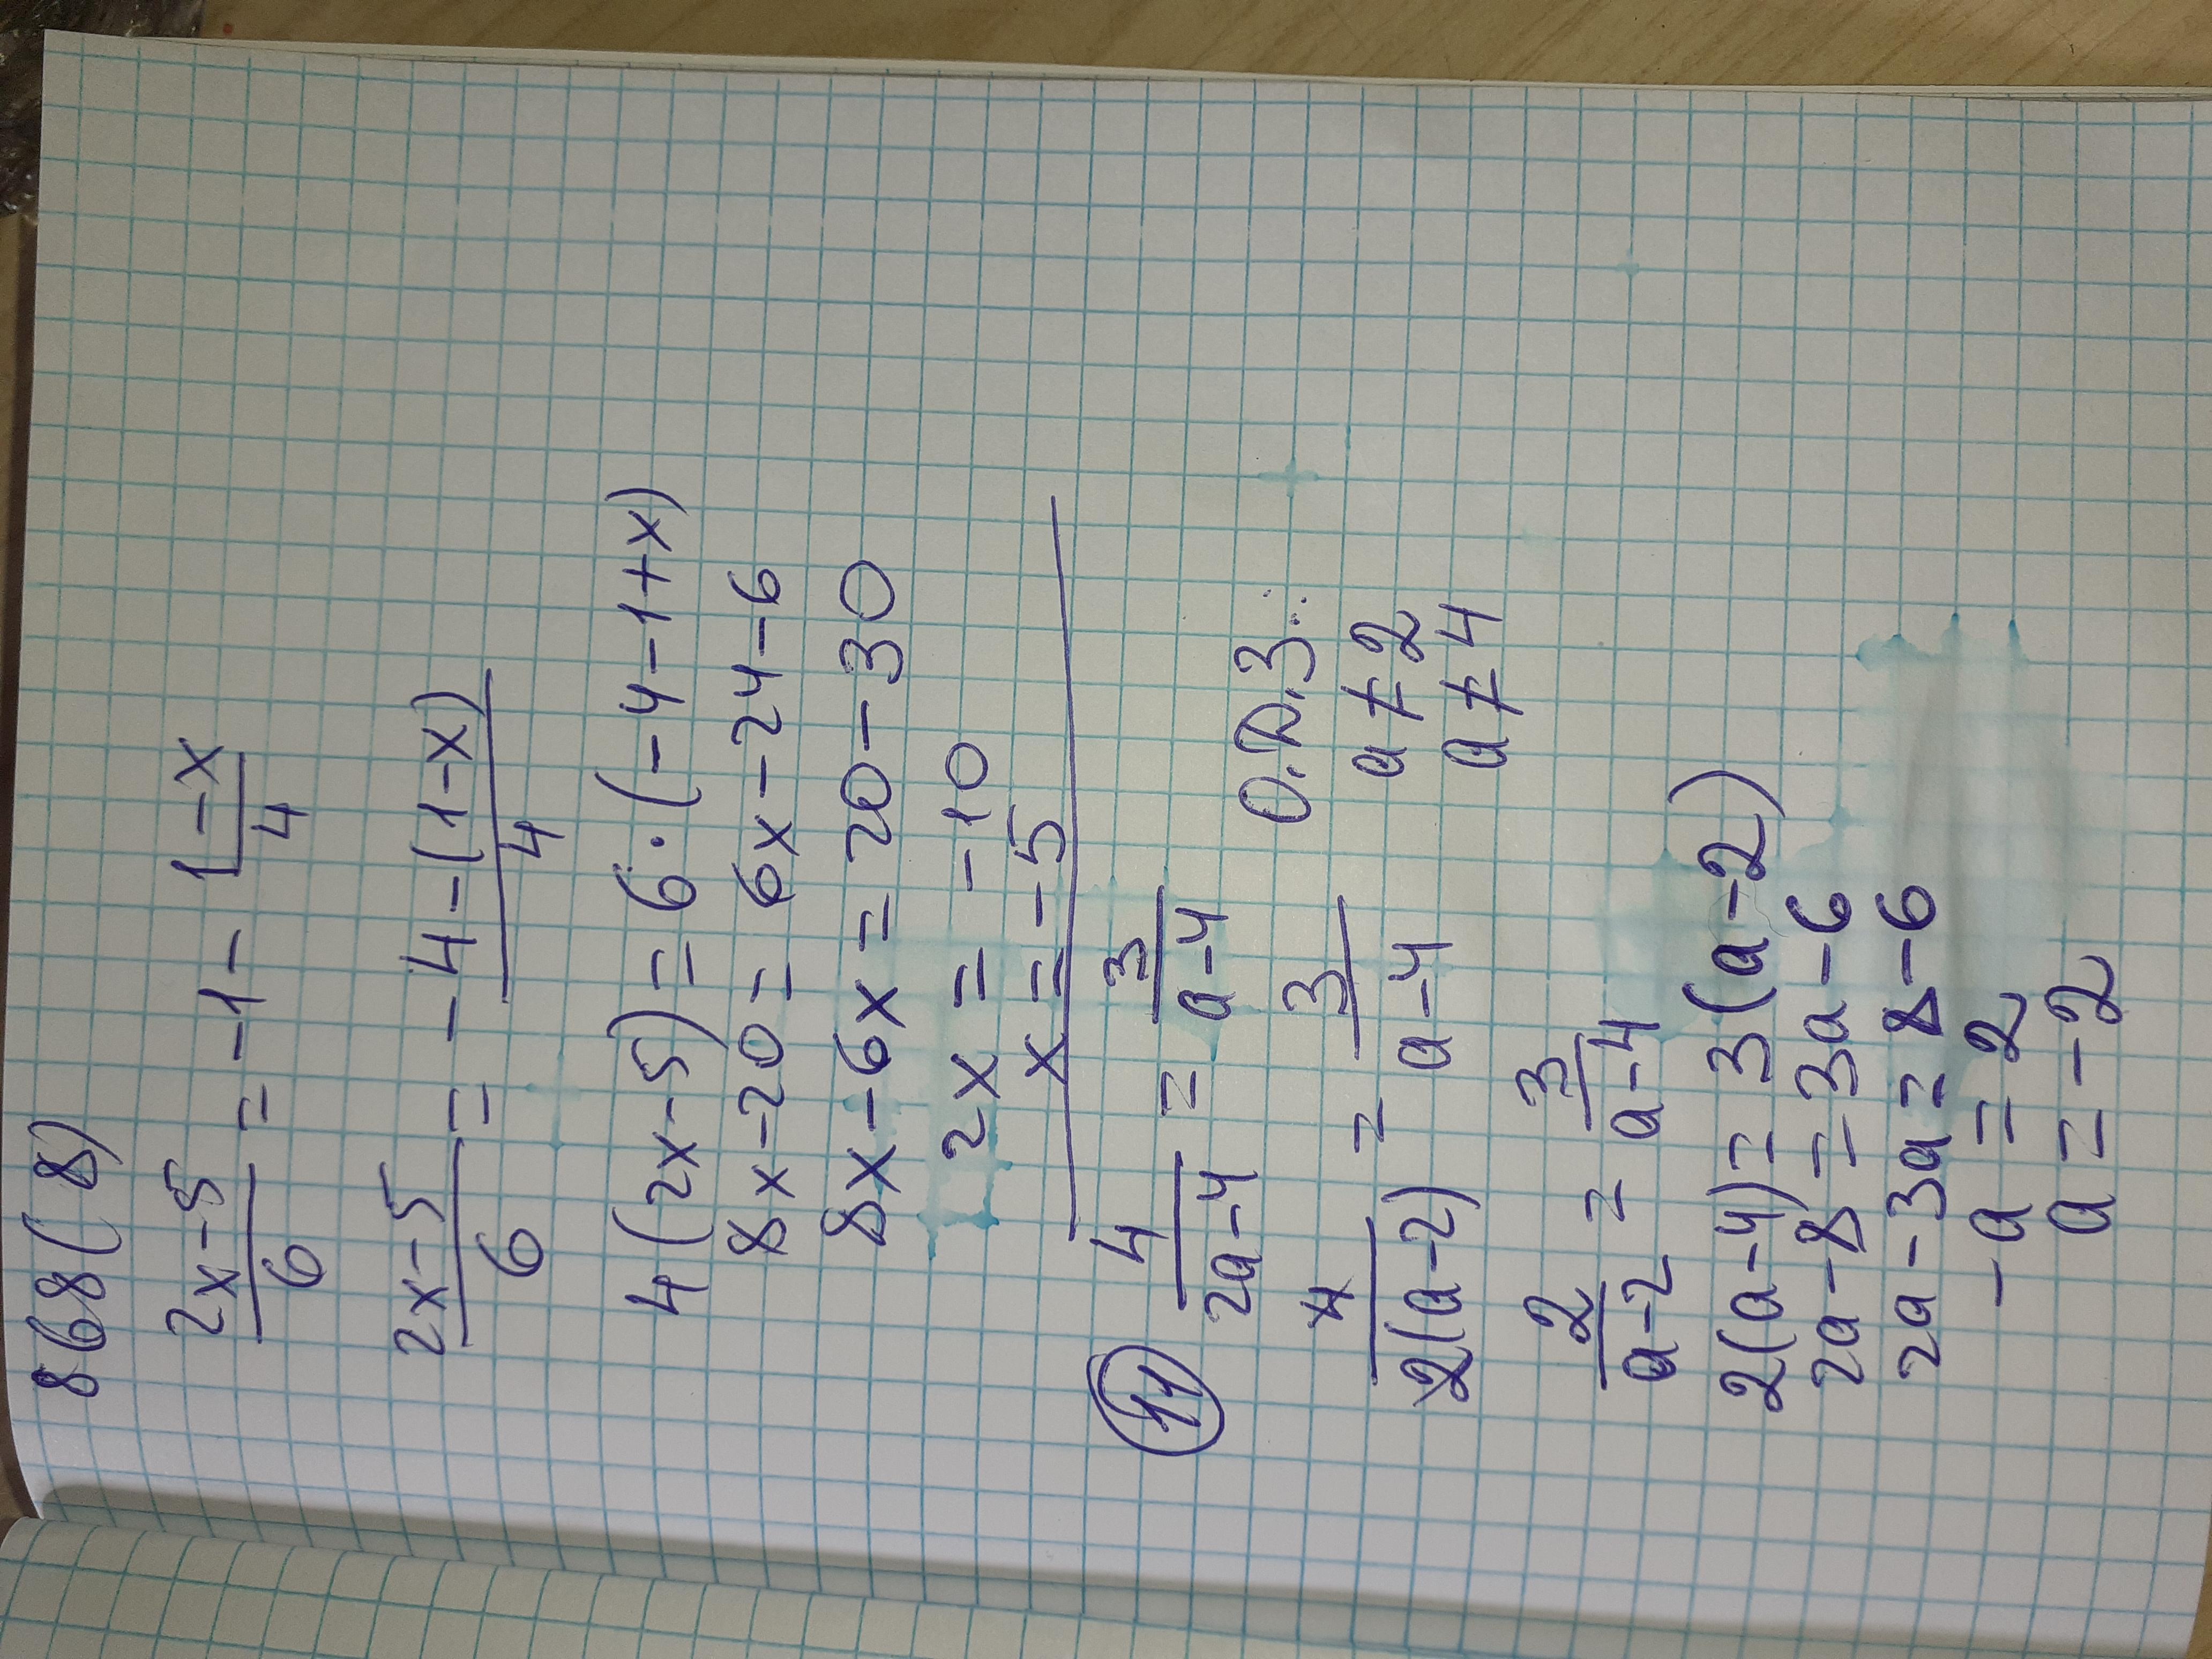 868(8)
(2x-5)/6 = -1 - (1-x)/4
(2x-5)/6 = (-4-(1-x))/4
4(2x-5) = 6·(-4-1+x)
8x-20 = 6x-24-6
8x-6x = 20-30
2x = -10
x = -5
11 4/(2a-4) = 3/(a-4)
О.Д.З.:
4/(2(a-2)) = 3/(a-4) a ≠ 2
a ≠ 4
2/(a-2) = 3/(a-4)
2(a-4) = 3(a-2)
2a-8 = 3a-6
2a-3a = 8-6
-a = 2
a = -2